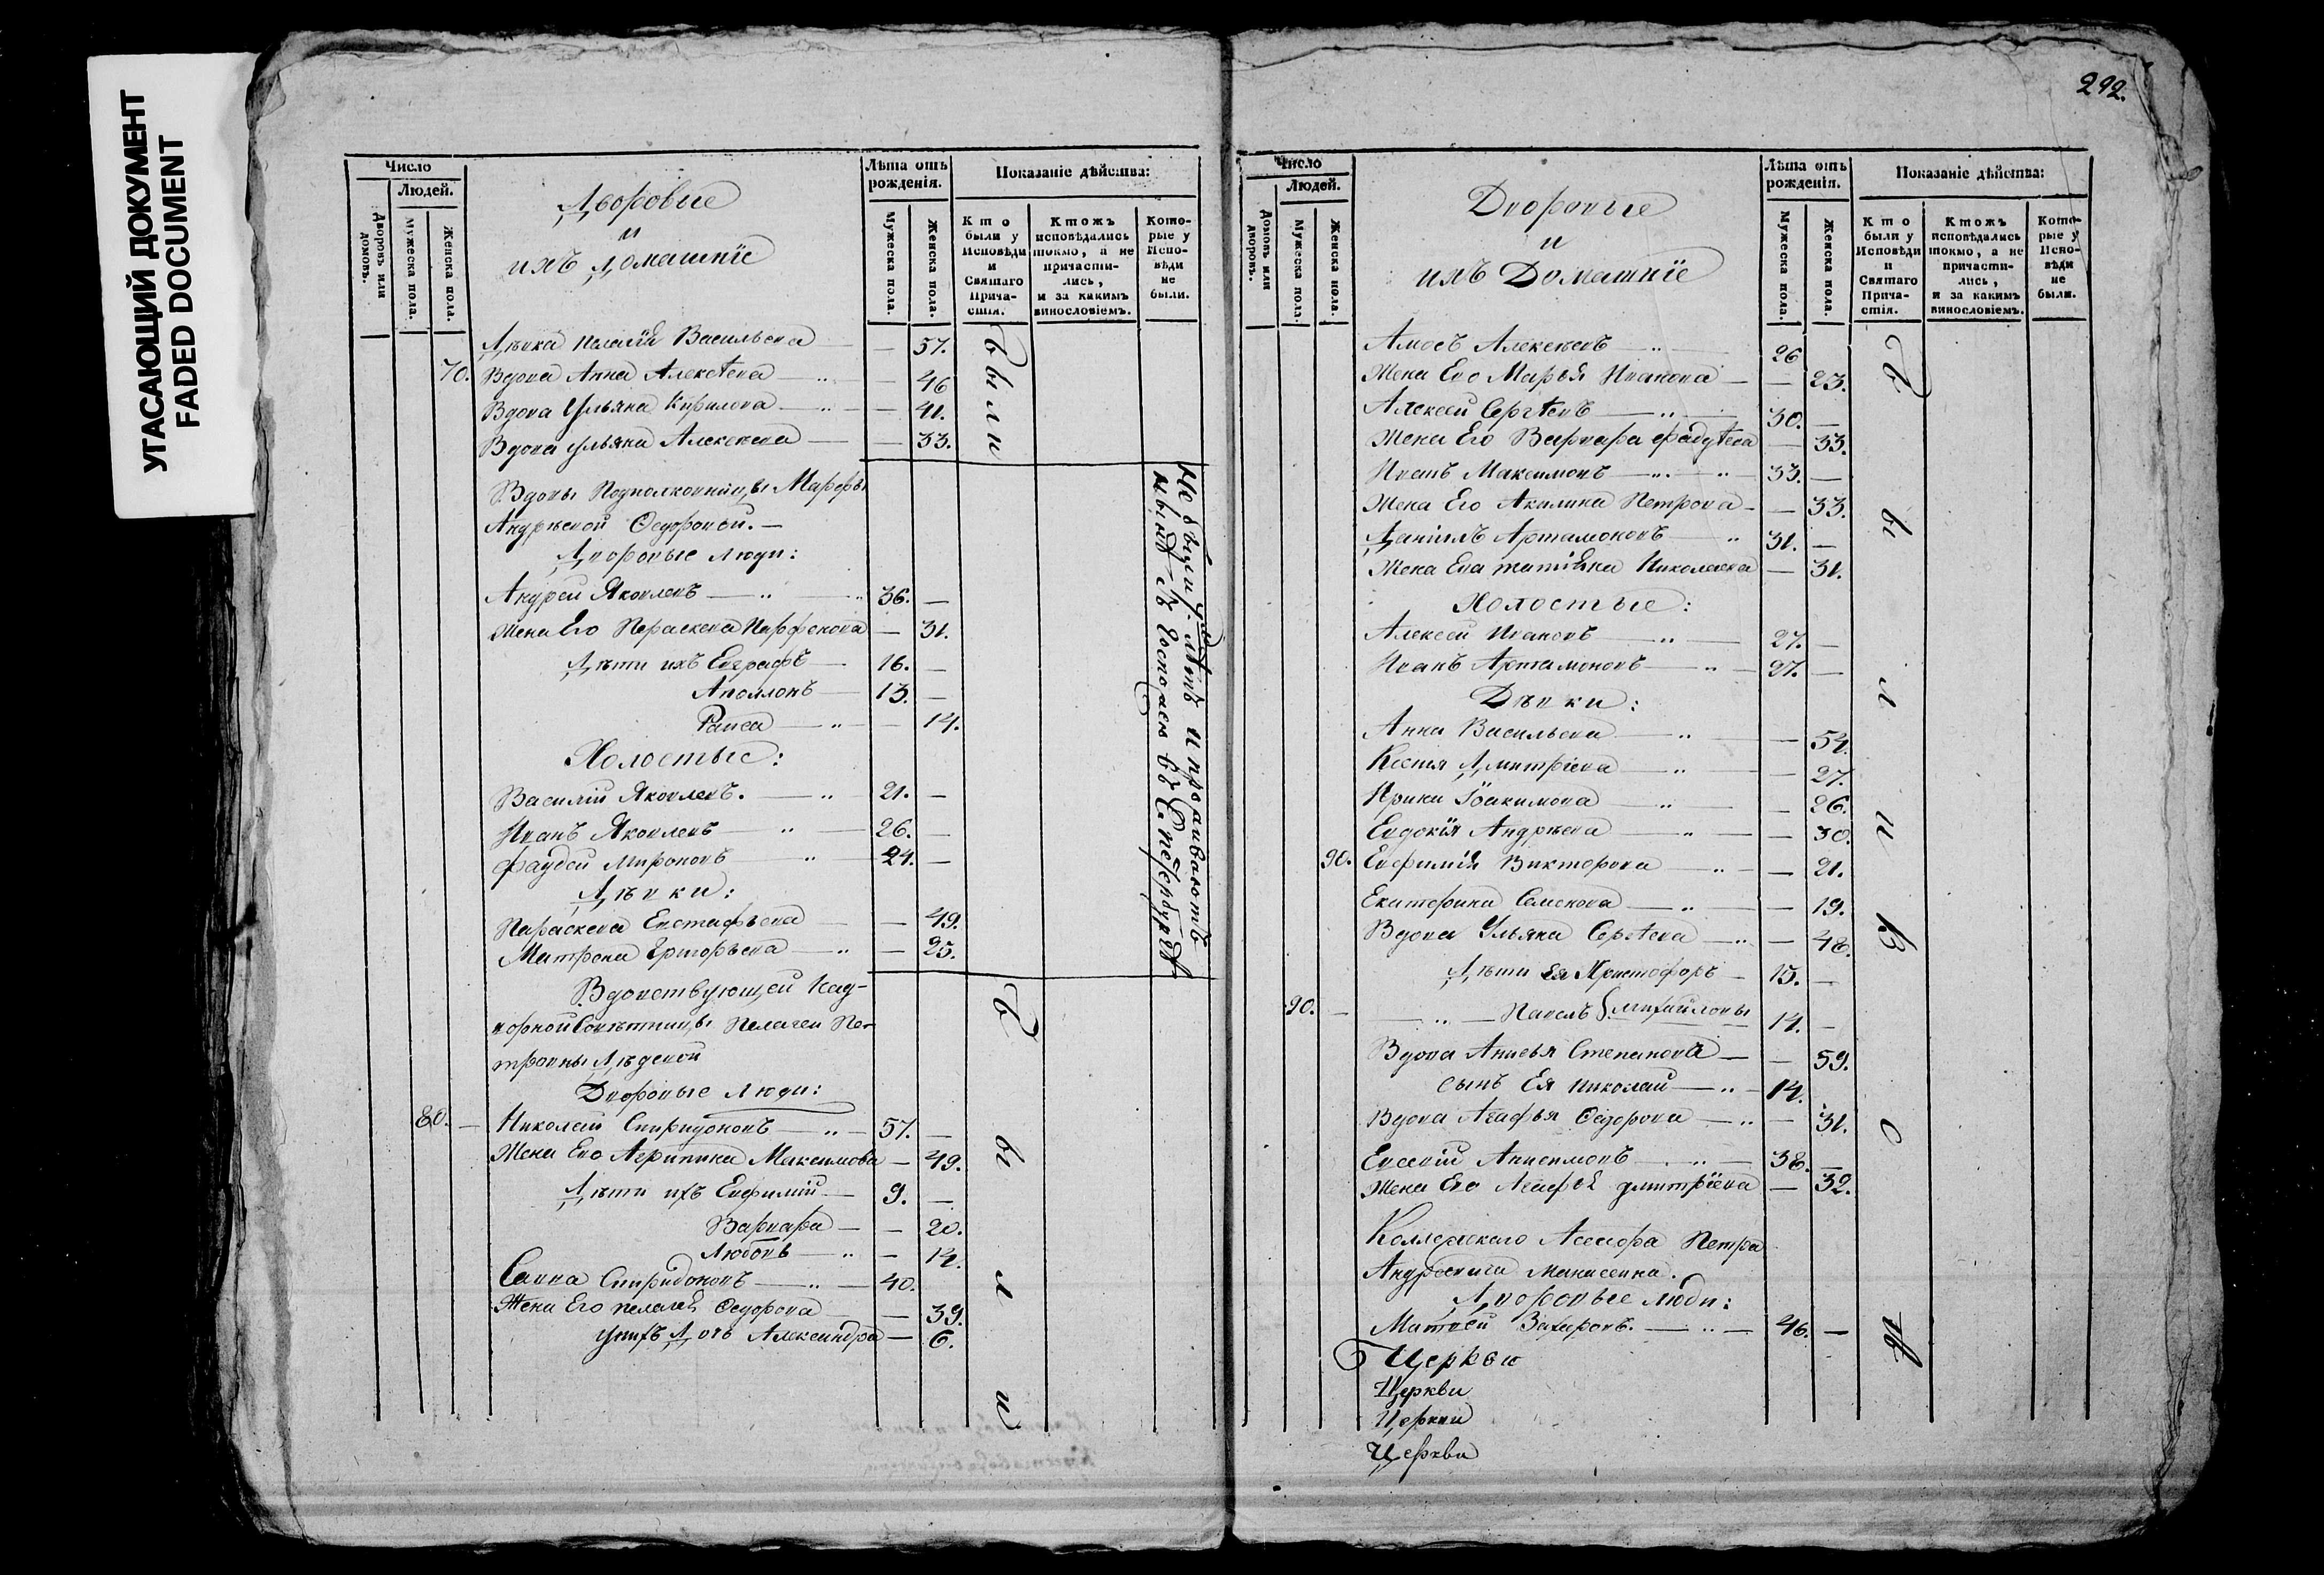 УГАСАЮЩИЙ ДОКУМЕНТ
FADED DOCUMENT
Число
Людей.
Дворовъ или домовъ.
Мужеска пола.
Женска пола.
Дворовые
и
ихъ домашніе
Лѣта отъ рожденія.
Мужеска пола.
Женска пола.
Показаніе дѣйства:
Кто были у Исповѣди и Святаго Прича-стія.
Ктожъ исповѣдались токмо, а не причасти-лись, и за какимъ винословіемъ.
Кото-рые у Испо-вѣди не были.
Дѣвка Пелагія Васильева — 57.
70. Вдова Анна Алексѣева — 46
Вдова Ульяна Кирилова — 41.
Вдова Ульяна Алексѣева — 33.
Были
Вдовы Подполковницы Марфы
Андрѣевой Ѳедоровой. —
Дворовые люди:
Андрей Яковлевъ — 36. —
Жена Его Параскева Парфенова — 31.
Дѣти ихъ Евграфъ — 16. —
Аполлонъ — 13. —
Раиса — 14.
Холостые:
Василій Яковлевъ. — 21. —
Иванъ Яковлевъ — 26. —
Фаддей Мироновъ — 24. —
Дѣвки:
Параскева Евстафьева — 49.
Матрона Григорьева — 25.
Вдовствующей Над-
ворной Совѣтницы Пелагеи Пе-
тровны Дѣдевой
Дворовые люди:
80. — Николай Спиридоновъ — 57. —
Жена Его Агрипина Максимова — 49.
Дѣти ихъ Евфимій — 9. —
Варвара — 20.
Любовь — 14.
Савва Спиридоновъ — 40.
Жена Его Пелагея Ѳедорова — 39.
У нихъ Дочь Александра — 6.
Были
292.
Число
Людей.
Домовъ или дворовъ.
Мужеска пола.
Женска пола.
Дворовые
и
ихъ Домашніе
Лѣта отъ рожденія.
Мужеска пола.
Женска пола.
Показаніе дѣйства:
Кто были у Исповѣди и Святаго Прича-стія.
Ктожъ исповѣдались токмо, а не причасти-лись, и за какимъ винословіемъ.
Кото-рые у Испо-вѣди не были.
Амосъ Алексѣевъ — 26
Жена Его Марья Иванова — 23.
Алексей Сергѣевъ — 30. —
Жена Его Варвара Фадѣева — 33.
Иванъ Максимовъ — 33. —
Жена Его Акилина Петрова — 33.
Даніилъ Артамоновъ — 31. —
Жена Его Татіяна Николаева — 31.
Холостые:
Алексей Ивановъ — 27. —
Иванъ Артамоновъ — 27. —
Дѣвки:
Анна Васильева — 54.
Ксенія Дмитріева — 27.
Ирина Іоакимова — 26.
Евдокія Андрѣева — 30.
90. Евфимія Викторова — 21.
Екатерина Семенова — 19.
Вдова Ульяна Сергѣева — 48.
Дѣти Ея Христофоръ — 15. —
90. — Павелъ } Михайловы 14. —
Вдова Анисья Степанова — 59.
сынъ Ея Николай — 14.
Вдова Агафья Ѳедорова — 31.
Евсевій Анисимовъ — 38. —
Жена Его Агафья Дмитріева — 32.
Коллежскаго Асессора Петра
Андрѣевича Манасеина.
Дворовые люди:
Матвей Захаровъ. — 46. —
Церквю
Церкви
Церкви
Церкви